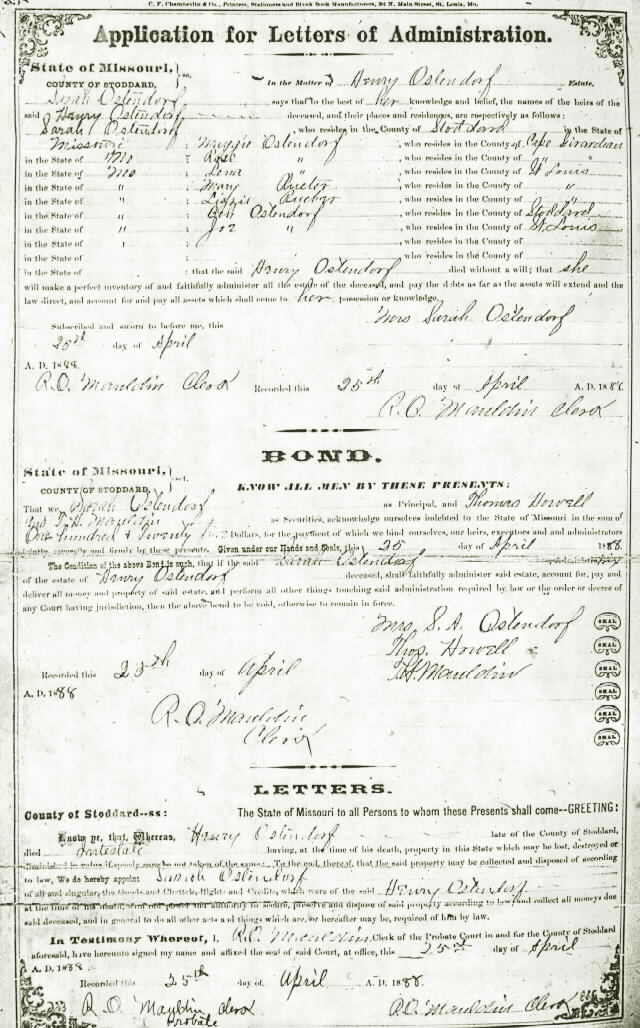 C. F. Chamberlin & Co., Printers, Stationers and Blank Book Manufacturers, N. Main Street, St. Louis, Mo.
Application for Letters of Administration.
State of Missouri,
COUNTY OF STODDARD, ss.
In the Matter of Henry Ostendorf Estate.
Sarah Ostendorf says that to the best of her knowledge and belief, the names of the heirs of the
said Henry Ostendorf deceased, and their places and residences, are respectively as follows:
Sarah Ostendorf , who resides in the County of Stoddard in the State of
Missouri : Maggie Ostendorf , who resides in the County of Cape Girardeau
in the State of Mo : Rose " , who resides in the County of " "
in the State of Mo : Lena " , who resides in the County of St Louis
in the State of " : Mary Rueter , who resides in the County of "
in the State of " : , who resides in the County of "
in the State of " : Ostendorf , who resides in the County of Stoddard
in the State of " : Joe " , who resides in the County of St. Louis
in the State of , who resides in the County of
in the State of : that the said Henry Ostendorf died without a will; that she
will make a perfect inventory of and faithfully administer all the estate of the deceased, and pay the debts as far as the assets will extend and the
law direct, and account for and pay all assets which shall come to her possession or knowledge.
Mrs Sarah Ostendorf
Subscribed and sworn to before me, this
25th day of April
A. D. 1888.
R. O. Mauldin Clerk Recorded this 25th day of April A. D. 1888.
R. O. Mauldin Clerk
BOND.
State of Missouri,
COUNTY OF STODDARD, sct.
KNOW ALL MEN BY THESE PRESENTS:
That we, Sarah Ostendorf as Principal, and Thomas Howell
and T. H. Mauldin as Securities, acknowledge ourselves indebted to the State of Missouri in the sum of
One hundred & twenty Dollars, for the payment of which we bind ourselves, our heirs, executors and and administrators
jointly, severally and firmly by these presents. Given under our Hands and Seals, this 25 day of April 1888.
The Condition of the above Bond is such, that if the said Sarah Ostendorf
of the estate of Henry Ostendorf deceased, shall faithfully administer said estate, account for, pay and
deliver all money and property of said estate, and perform all other things touching said administration required by law or the order or decree
of any Court having jurisdiction, then the above bond to be void, otherwise to remain in force.
Mrs. S. A. Ostendorf SEAL
Thos. Howell SEAL
T. H. Mauldin SEAL
SEAL
SEAL
Recorded this 25th day of April
A. D. 1888
R. O. Mauldin
Clerk
LETTERS.
County of Stoddard--ss: The State of Missouri to all Persons to whom these Presents shall come--GREETING:
Know ye, that, Whereas, Henry Ostendorf late of the County of Stoddard,
died Intestate having, at the time of his death, property in this State which may be lost, destroyed or
diminished in value if speedy care be not taken of the same: To the end, therefore, that the said property may be collected and disposed of according
to law, We do hereby appoint Sarah Ostendorf
of all and singular, the Goods and Chattels, Rights and Credits, which were of the said Henry Ostendorf
at the time of his death, with full power and authority to secure, preserve and dispose of said property according to law and collect all moneys due
said deceased, and in general to do all other acts and things which are, or hereafter may be, required of him by law.
In Testimony Whereof, I, R. O. Mauldin, Clerk of the Probate Court in and for the County of Stoddard
aforesaid, have hereunto signed my name and affixed the seal of said Court, at office, this 25th day of April
A. D. 1888
Recorded this 25th day of April A. D. 1888.
R. O. Mauldin Clerk
Probate
R. O. Mauldin Clerk